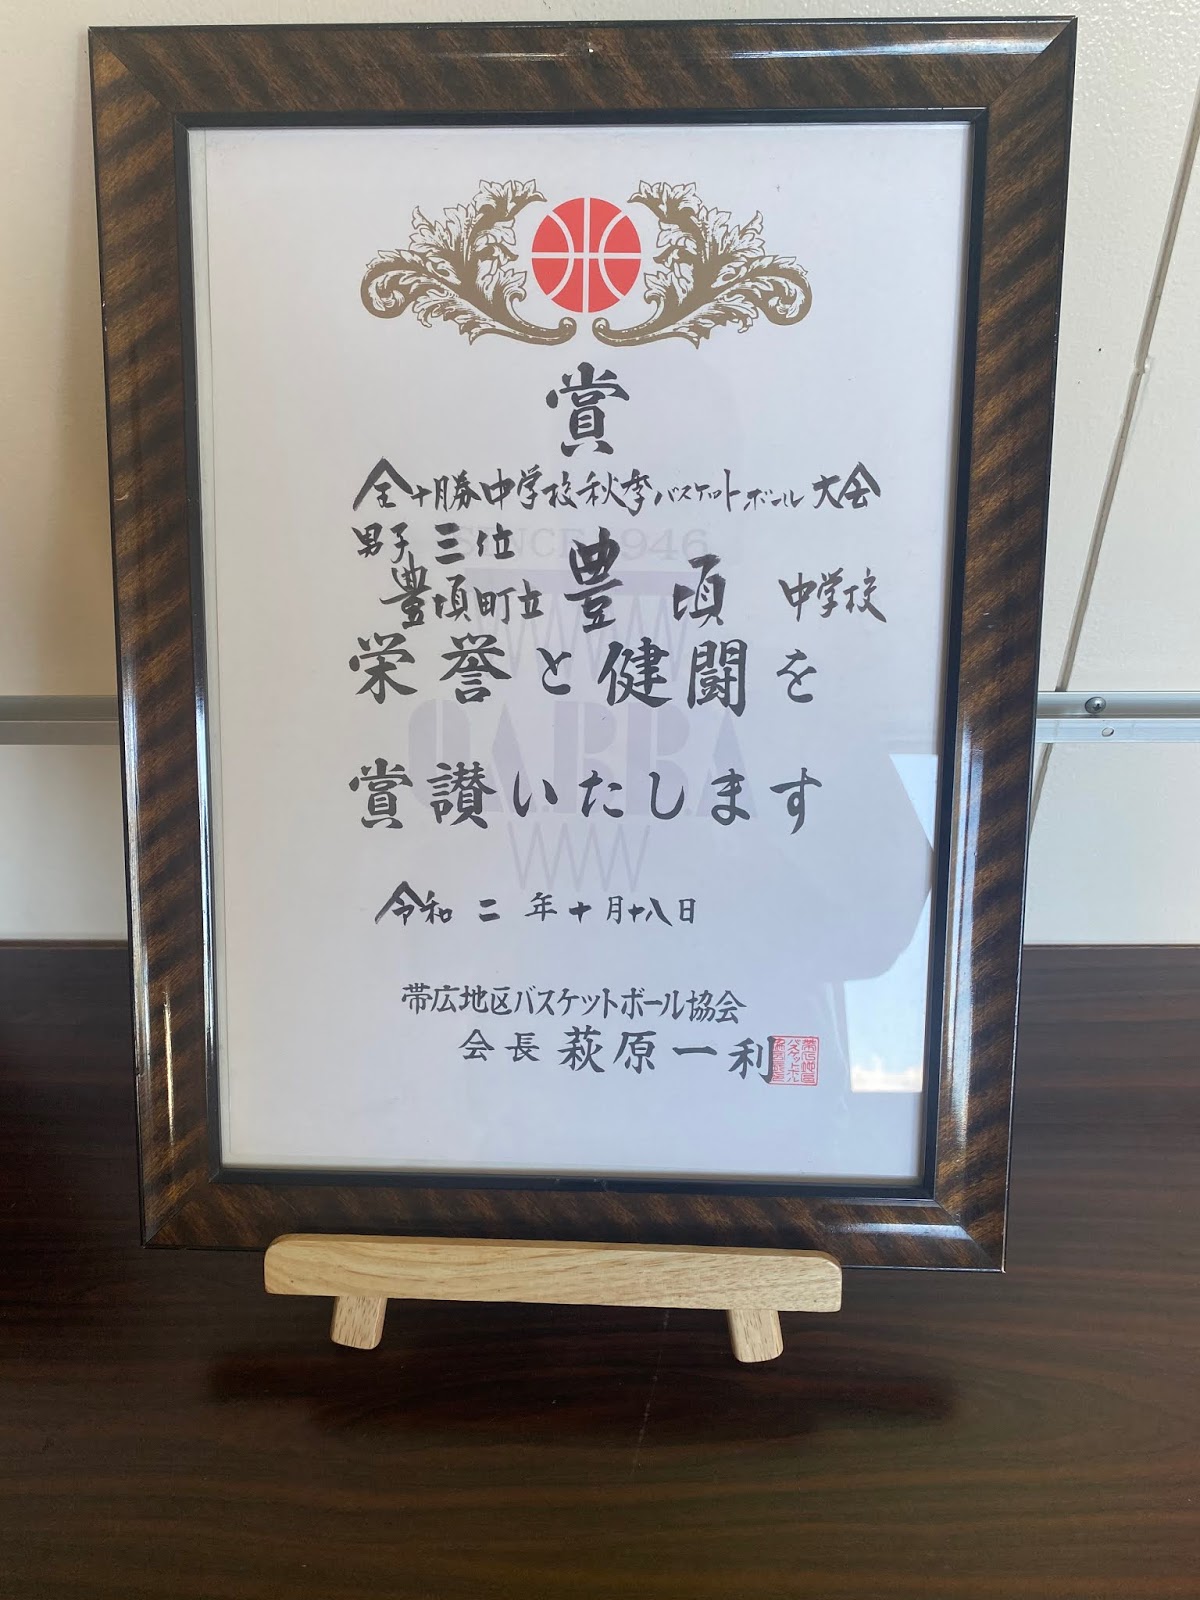 賞
全十勝中学校秋季バスケットボール大会
男子三位
豊頃町立 豊頃 中学校
SINCE 1946
栄誉と健闘を
O.A.B.B.A
賞讃いたします
令和二年十月十八日
帯広地区バスケットボール協会
会長 萩原一利